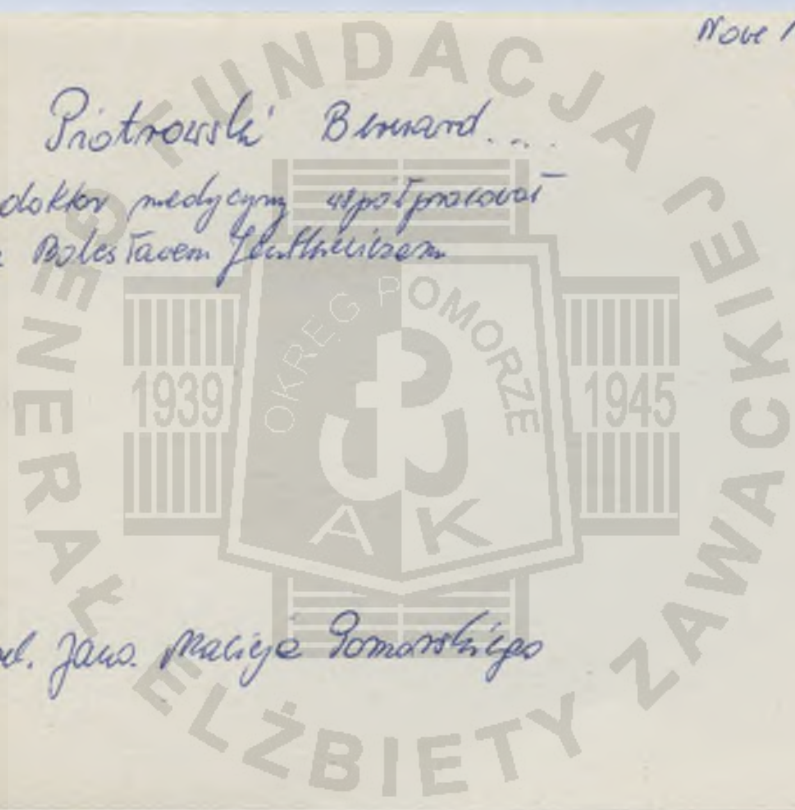 Nowe
Piotrowski Bernard...
doktor medycyny współpracował
z Bolesławem
rel. Jana Macieja Pomorskiego
FUNDACJA
GENERAŁ ELŻBIETY ZAWACKIEJ
OKRĘG POMORZE
1939
1945
AK